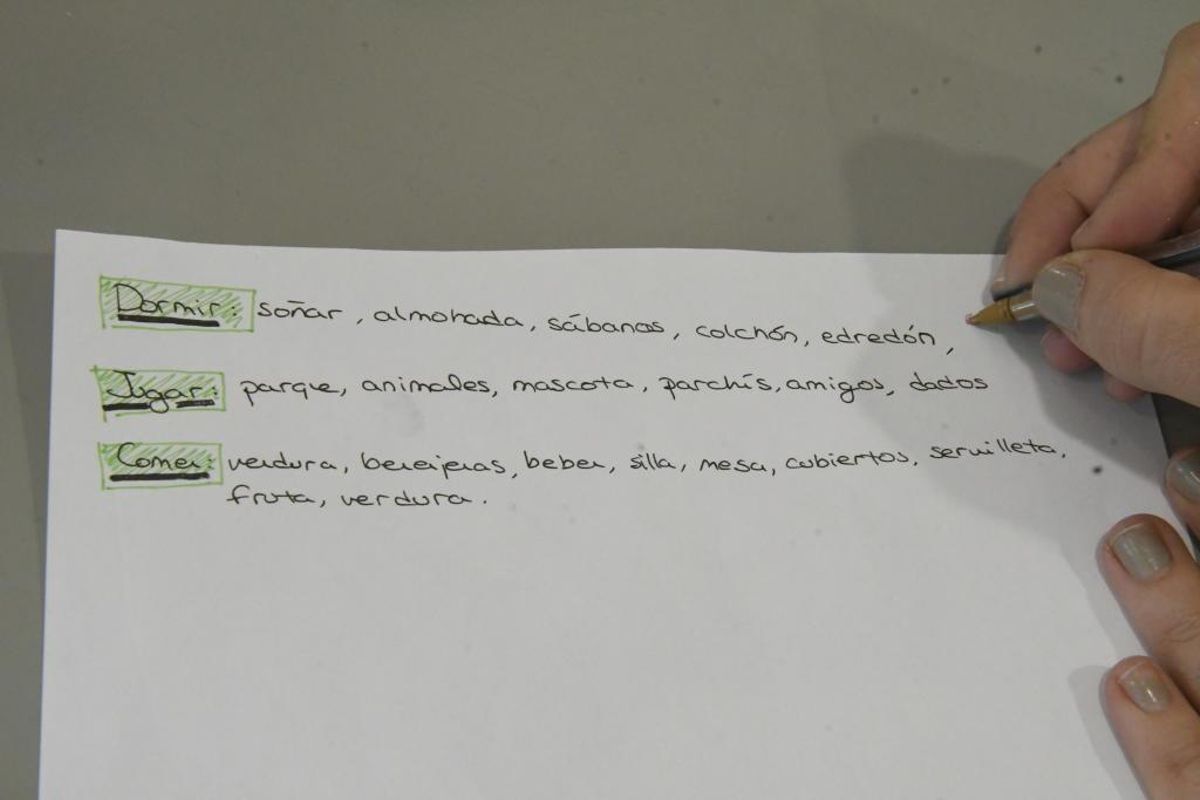 Dormir: soñar, almohada, sábanas, colchón, edredón,
Jugar: parque, animales, mascota, parchís, amigos, dados
Comer: verdura, berenjenas, beber, silla, mesa, cubiertos, servilleta,
fruta, verdura.